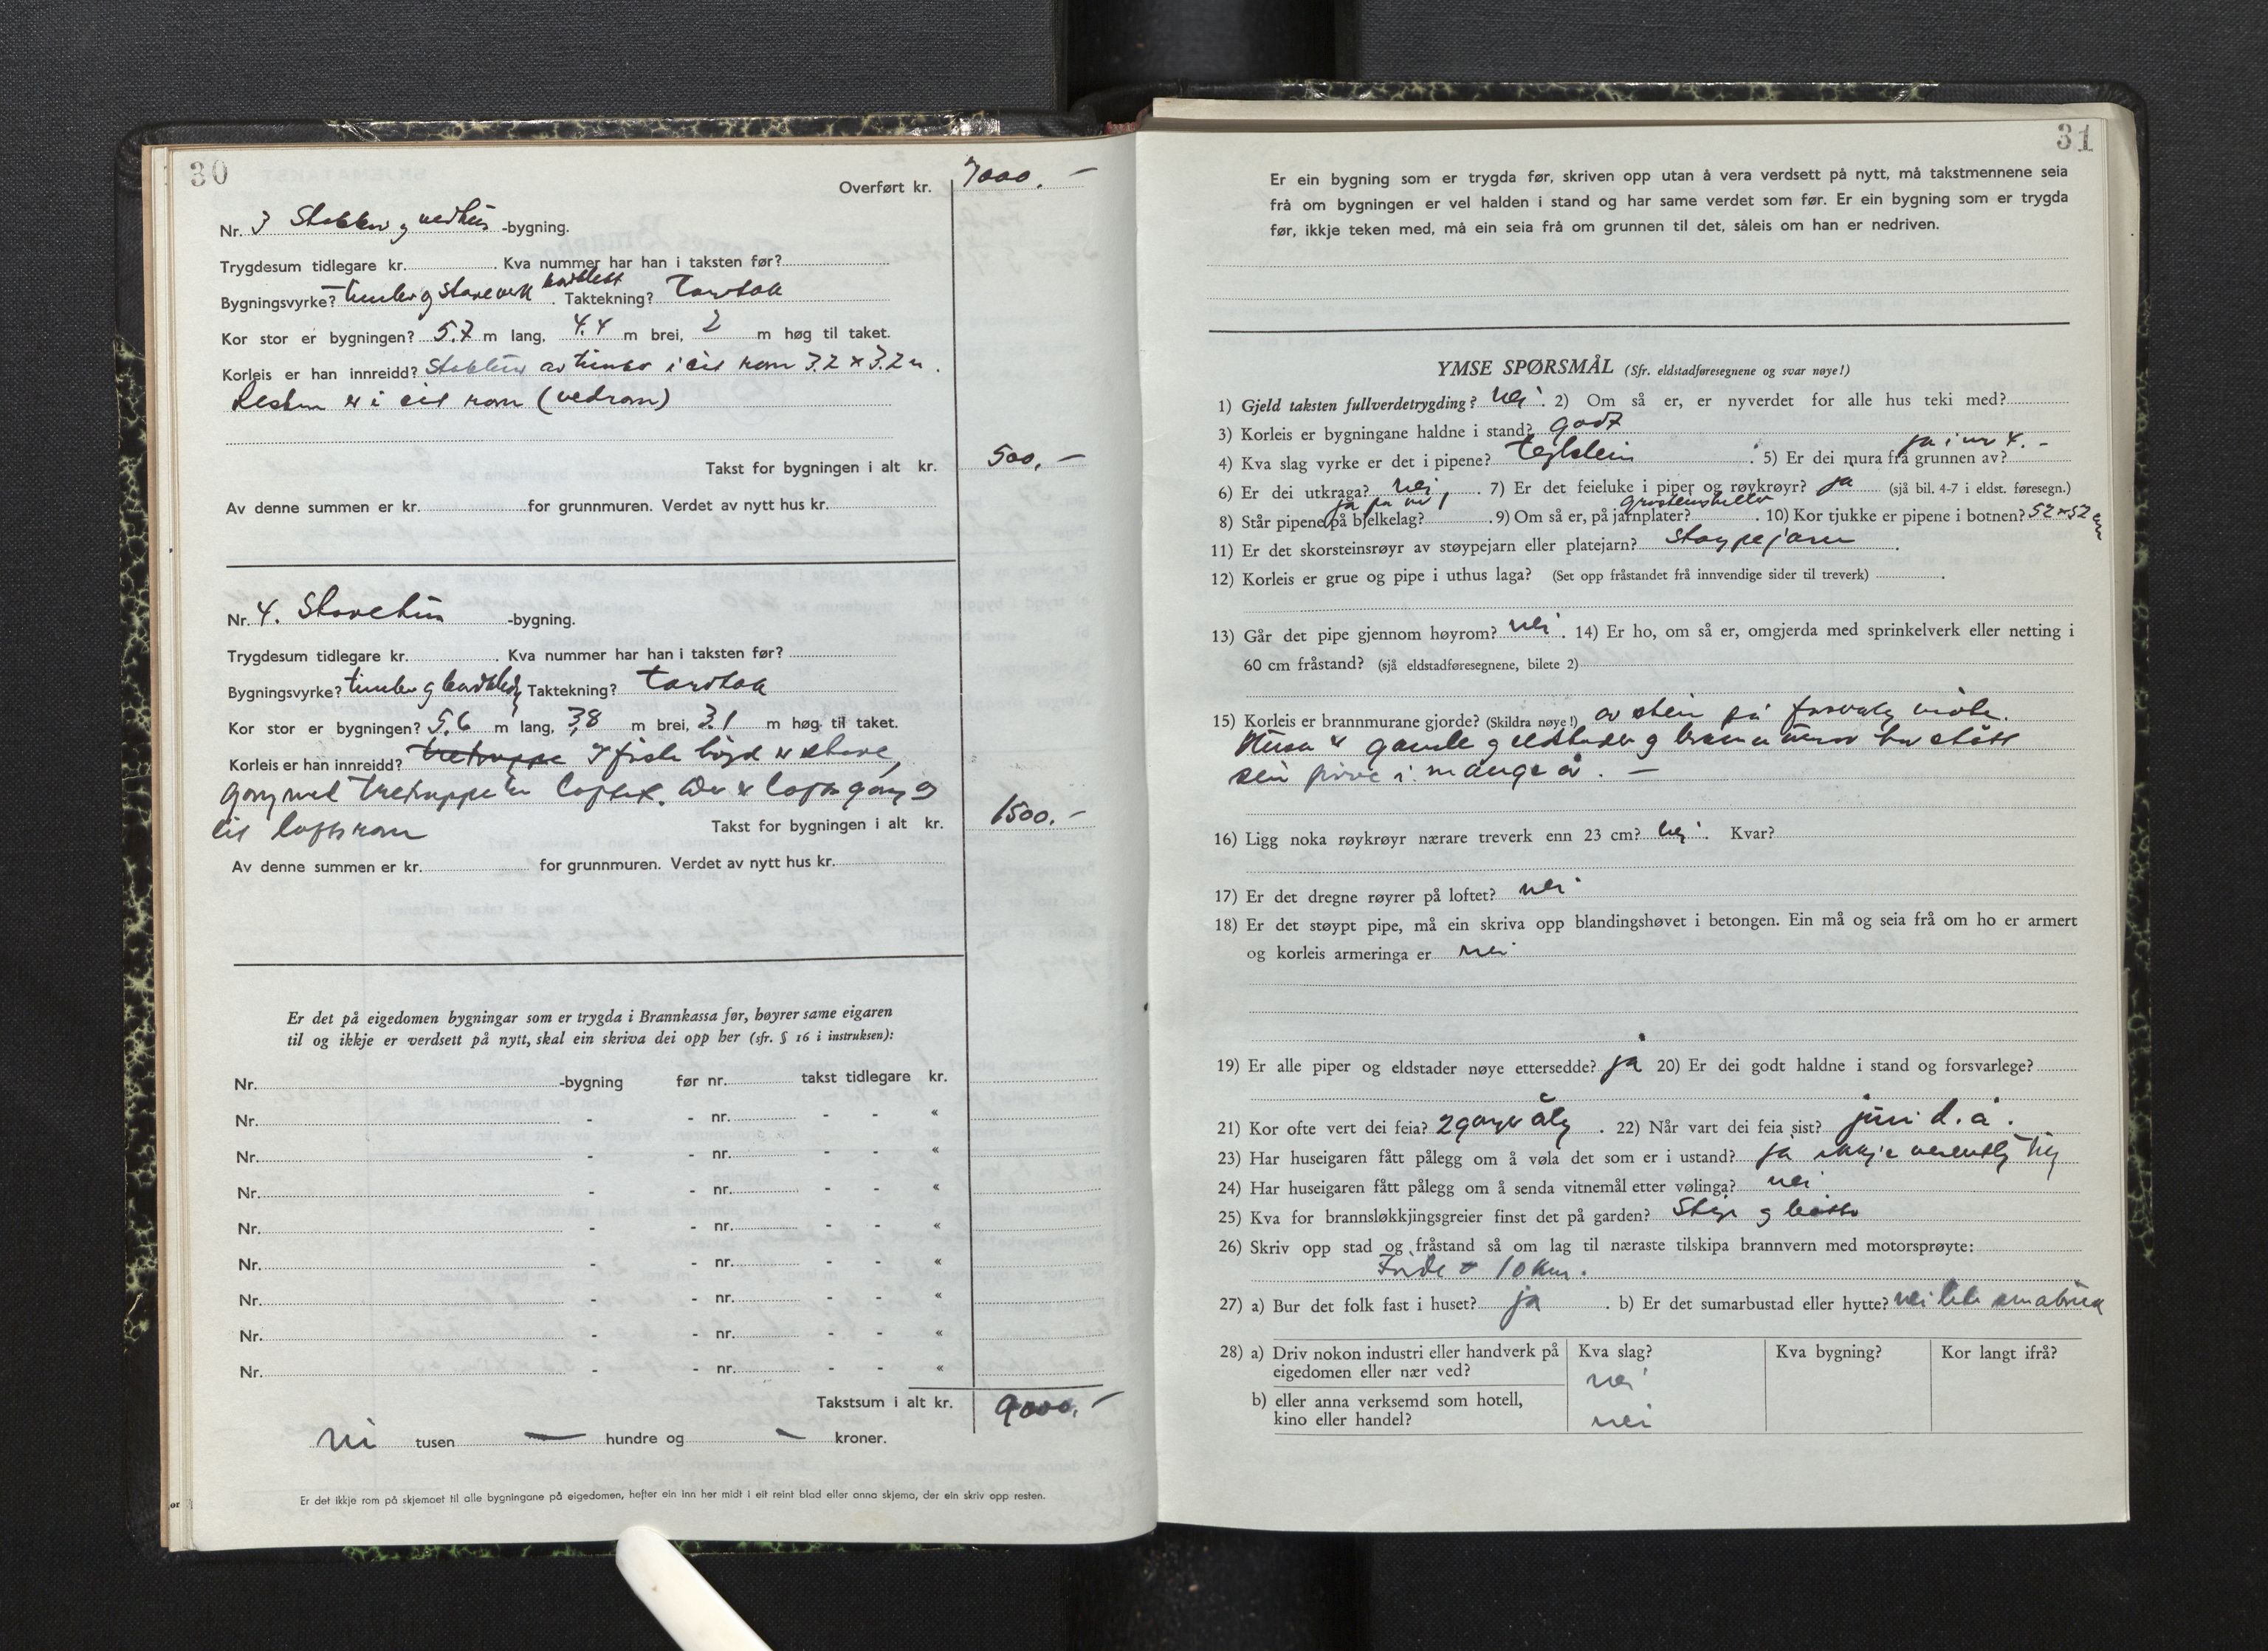 30
Overført kr. 7000.-
Nr. 3 Stabbur og vedhus -bygning.
Trygdesum tidlegare kr. Kva nummer har han i taksten før?
Bygningsvyrke? timber og stavverk bordkledt. Taktekning? torvtak
Kor stor er bygningen? 5.7 m lang, 4.4 m brei, 2 m høg til taket.
Korleis er han innreidd? Stabbur av timber i eit rom 3.2 x 3.2 m.
Resten er i eit rom (vedrom)
Takst for bygningen i alt kr. 500.-
Av denne summen er kr. for grunnmuren. Verdet av nytt hus kr.
Nr. 4. Stovehus -bygning.
Trygdesum tidlegare kr. Kva nummer har han i taksten før?
Bygningsvyrke? timber og bordkledt Taktekning? torvtak
Kor stor er bygningen? 5.6 m lang, 3.8 m brei, 3.1 m høg til taket.
Korleis er han innreidd? tretrappe I fyrste høgd er stove,
gang med tretrappe til loftet. Der er loftsgang og
eit loftsrom Takst for bygningen i alt kr. 1500.-
Av denne summen er kr. for grunnmuren. Verdet av nytt hus kr.
Er det på eigedomen bygningar som er trygda i Brannkassa før, høyrer same eigaren
til og ikkje er verdsett på nytt, skal ein skriva dei opp her (sfr. § 16 i instruksen):
Nr. -bygning før nr. takst tidlegare kr.
Nr. - - nr. - - «
Nr. - - nr. - - «
Nr. - - nr. - - «
Nr. - - nr. - - «
Nr. - - nr. - - «
Nr. - - nr. - - «
Nr. - - nr. - - «
Nr. - - nr. - - «
Takstsum i alt kr. 9000.-
ni tusen — hundre og - kroner.
Er det ikkje rom på skjemaet til alle bygningane på eigedomen, hefter ein inn her midt i eit reint blad eller anna skjema, der ein skriv opp resten.
31
Er ein bygning som er trygda før, skriven opp utan å vera verdsett på nytt, må takstmennene seia
frå om bygningen er vel halden i stand og har same verdet som før. Er ein bygning som er trygda
før, ikkje teken med, må ein seia frå om grunnen til det, såleis om han er nedriven.
YMSE SPØRSMÅL (Sfr. eldstadføresegnene og svar nøye!)
1) Gjeld taksten fullverdetrygding? nei. 2) Om så er, er nyverdet for alle hus teki med?
3) Korleis er bygningane haldne i stand? godt
4) Kva slag vyrke er det i pipene? teglstein. 5) Er dei mura frå grunnen av? ja i nr 4. -
6) Er dei utkraga? nei. 7) Er det feieluke i piper og røykrøyr? ja (sjå bil. 4-7 i eldst. føresegn.)
8) Står pipene på bjelkelag? ja på nr 1. 9) Om så er, på jarnplater? gråsteinsheller. 10) Kor tjukke er pipene i botnen? 52 x 52 cm
11) Er det skorsteinsrøyr av støypejarn eller platejarn? støypejarn.
12) Korleis er grue og pipe i uthus laga? (Set opp fråstandet frå innvendige sider til treverk)
13) Går det pipe gjennom høyrom? nei. 14) Er ho, om så er, omgjerda med sprinkelverk eller netting i
60 cm fråstand? (sjå eldstadføresegnene, bilete 2)
15) Korleis er brannmurane gjorde? (Skildra nøye!) av stein på forsvarleg måte.
Husa er gamle og eldstader og brannmurar har stått
sin prøve i mange år. -
16) Ligg noka røykrøyr nærare treverk enn 23 cm? nei. Kvar?
17) Er det dregne røyrer på loftet? nei
18) Er det støypt pipe, må ein skriva opp blandingshøvet i betongen. Ein må og seia frå om ho er armert
og korleis armeringa er nei
19) Er alle piper og eldstader nøye ettersedde? ja 20) Er dei godt haldne i stand og forsvarlege?
21) Kor ofte vert dei feia? 2 gonger årleg. 22) Når vart dei feia sist? juni d. å.
23) Har huseigaren fått pålegg om å vøla det som er i ustand? ja ikkje
24) Har huseigaren fått pålegg om å senda vitnemål etter vølinga? nei
25) Kva for brannsløkkjingsgreier finst det på garden? Stige og bøtter
26) Skriv opp stad og fråstand så om lag til næraste tilskipa brannvern med motorsprøyte:
Førde 10 km.
27) a) Bur det folk fast i huset? ja. b) Er det sumarbustad eller hytte? nei lite småbruk
28) a) Driv nokon industri eller handverk på eigedomen eller nær ved? Kva slag? nei Kva bygning? Kor langt ifrå?
b) eller anna verksemd som hotell, kino eller handel? nei